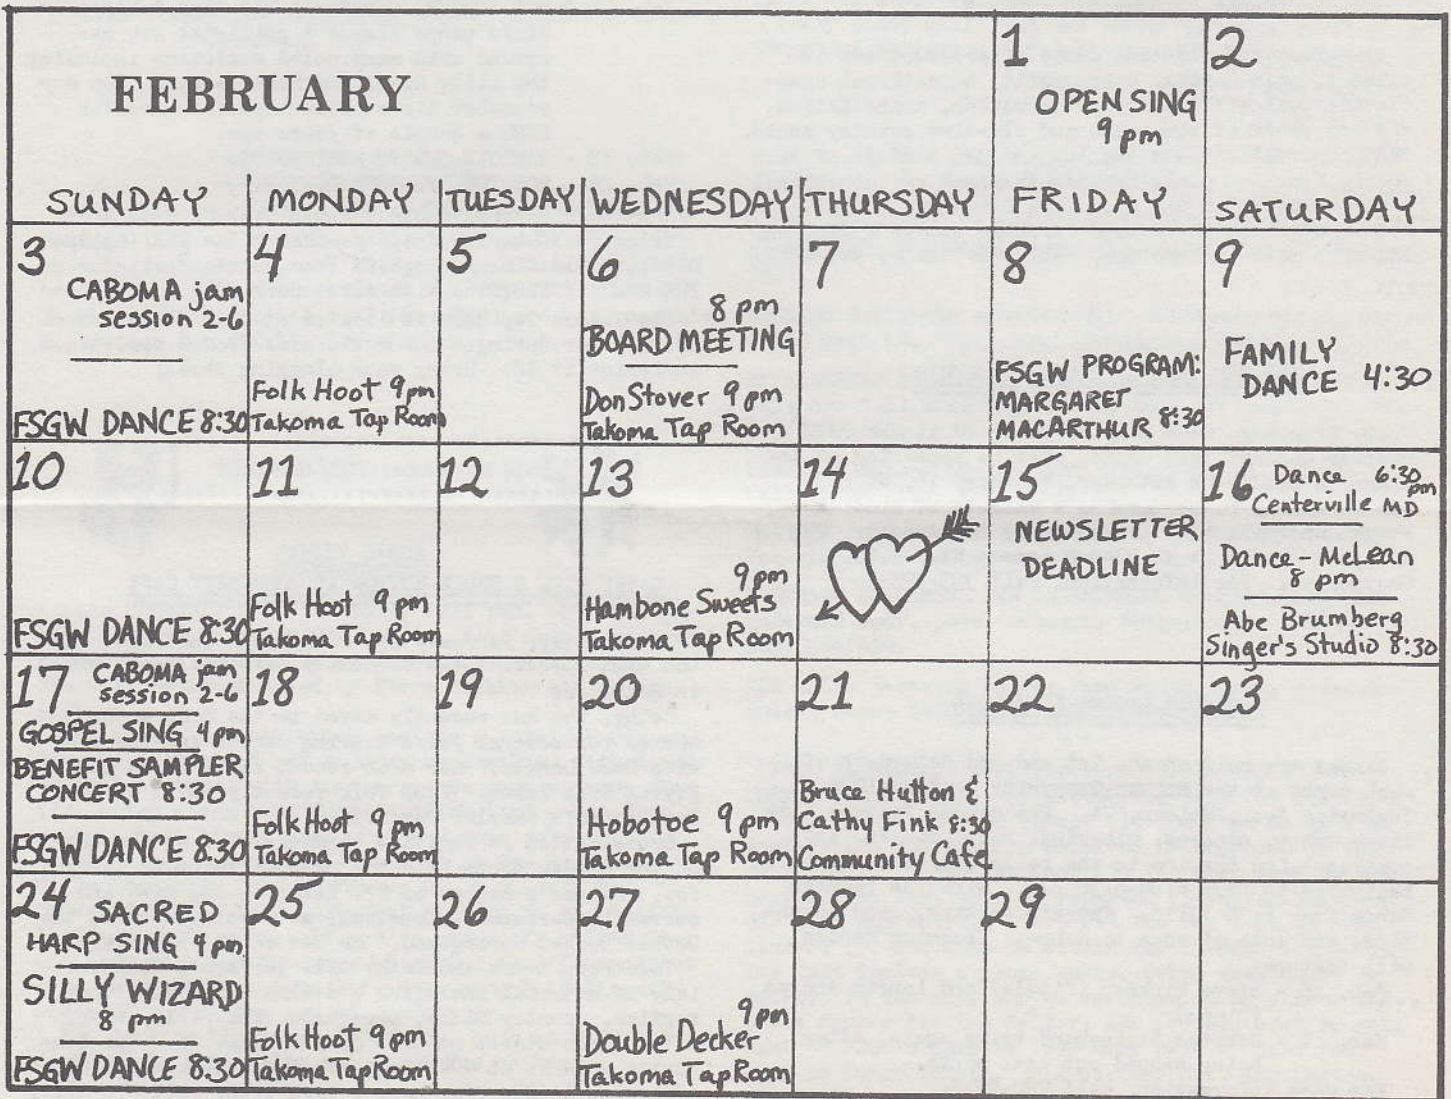 FEBRUARY
1
OPEN SING
9 pm
2
SUNDAY
MONDAY
TUESDAY
WEDNESDAY
THURSDAY
FRIDAY
SATURDAY
3
CABOMA jam
session 2-6
FSGW DANCE 8:30
4
Folk Hoot 9pm
Takoma Tap Room
5
6
8 pm
BOARD MEETING
Don Stover 9 pm
Takoma Tap Room
7
8
FSGW PROGRAM:
MARGARET
MACARTHUR 8:30
9
FAMILY
DANCE 4:30
10
FSGW DANCE 8:30
11
Folk Hoot 9 pm
Takoma Tap Room
12
13
9 pm
Hambone Sweets
Takoma Tap Room
14
15
NEWSLETTER
DEADLINE
16 Dance 6:30 pm
Centerville MD
Dance - McLean
8 pm
Abe Brumberg
Singer's Studio 8:30
17 CABOMA jam
session 2-6
GOSPEL SING 4pm
BENEFIT SAMPLER
CONCERT 8:30
FSGW DANCE 8:30
18
Folk Hoot 9pm
Takoma Tap Room
19
20
Hobotoe 9 pm
Takoma Tap Room
21
Bruce Hutton &
Cathy Fink 8:30
Community Cafe
22
23
24 SACRED
HARP SING 4 pm
SILLY WIZARD
8 pm
FSGW DANCE 8:30
25
Folk Hoot 9pm
Takoma Tap Room
26
27
9pm
Double Decker
Takoma Tap Room
28
29